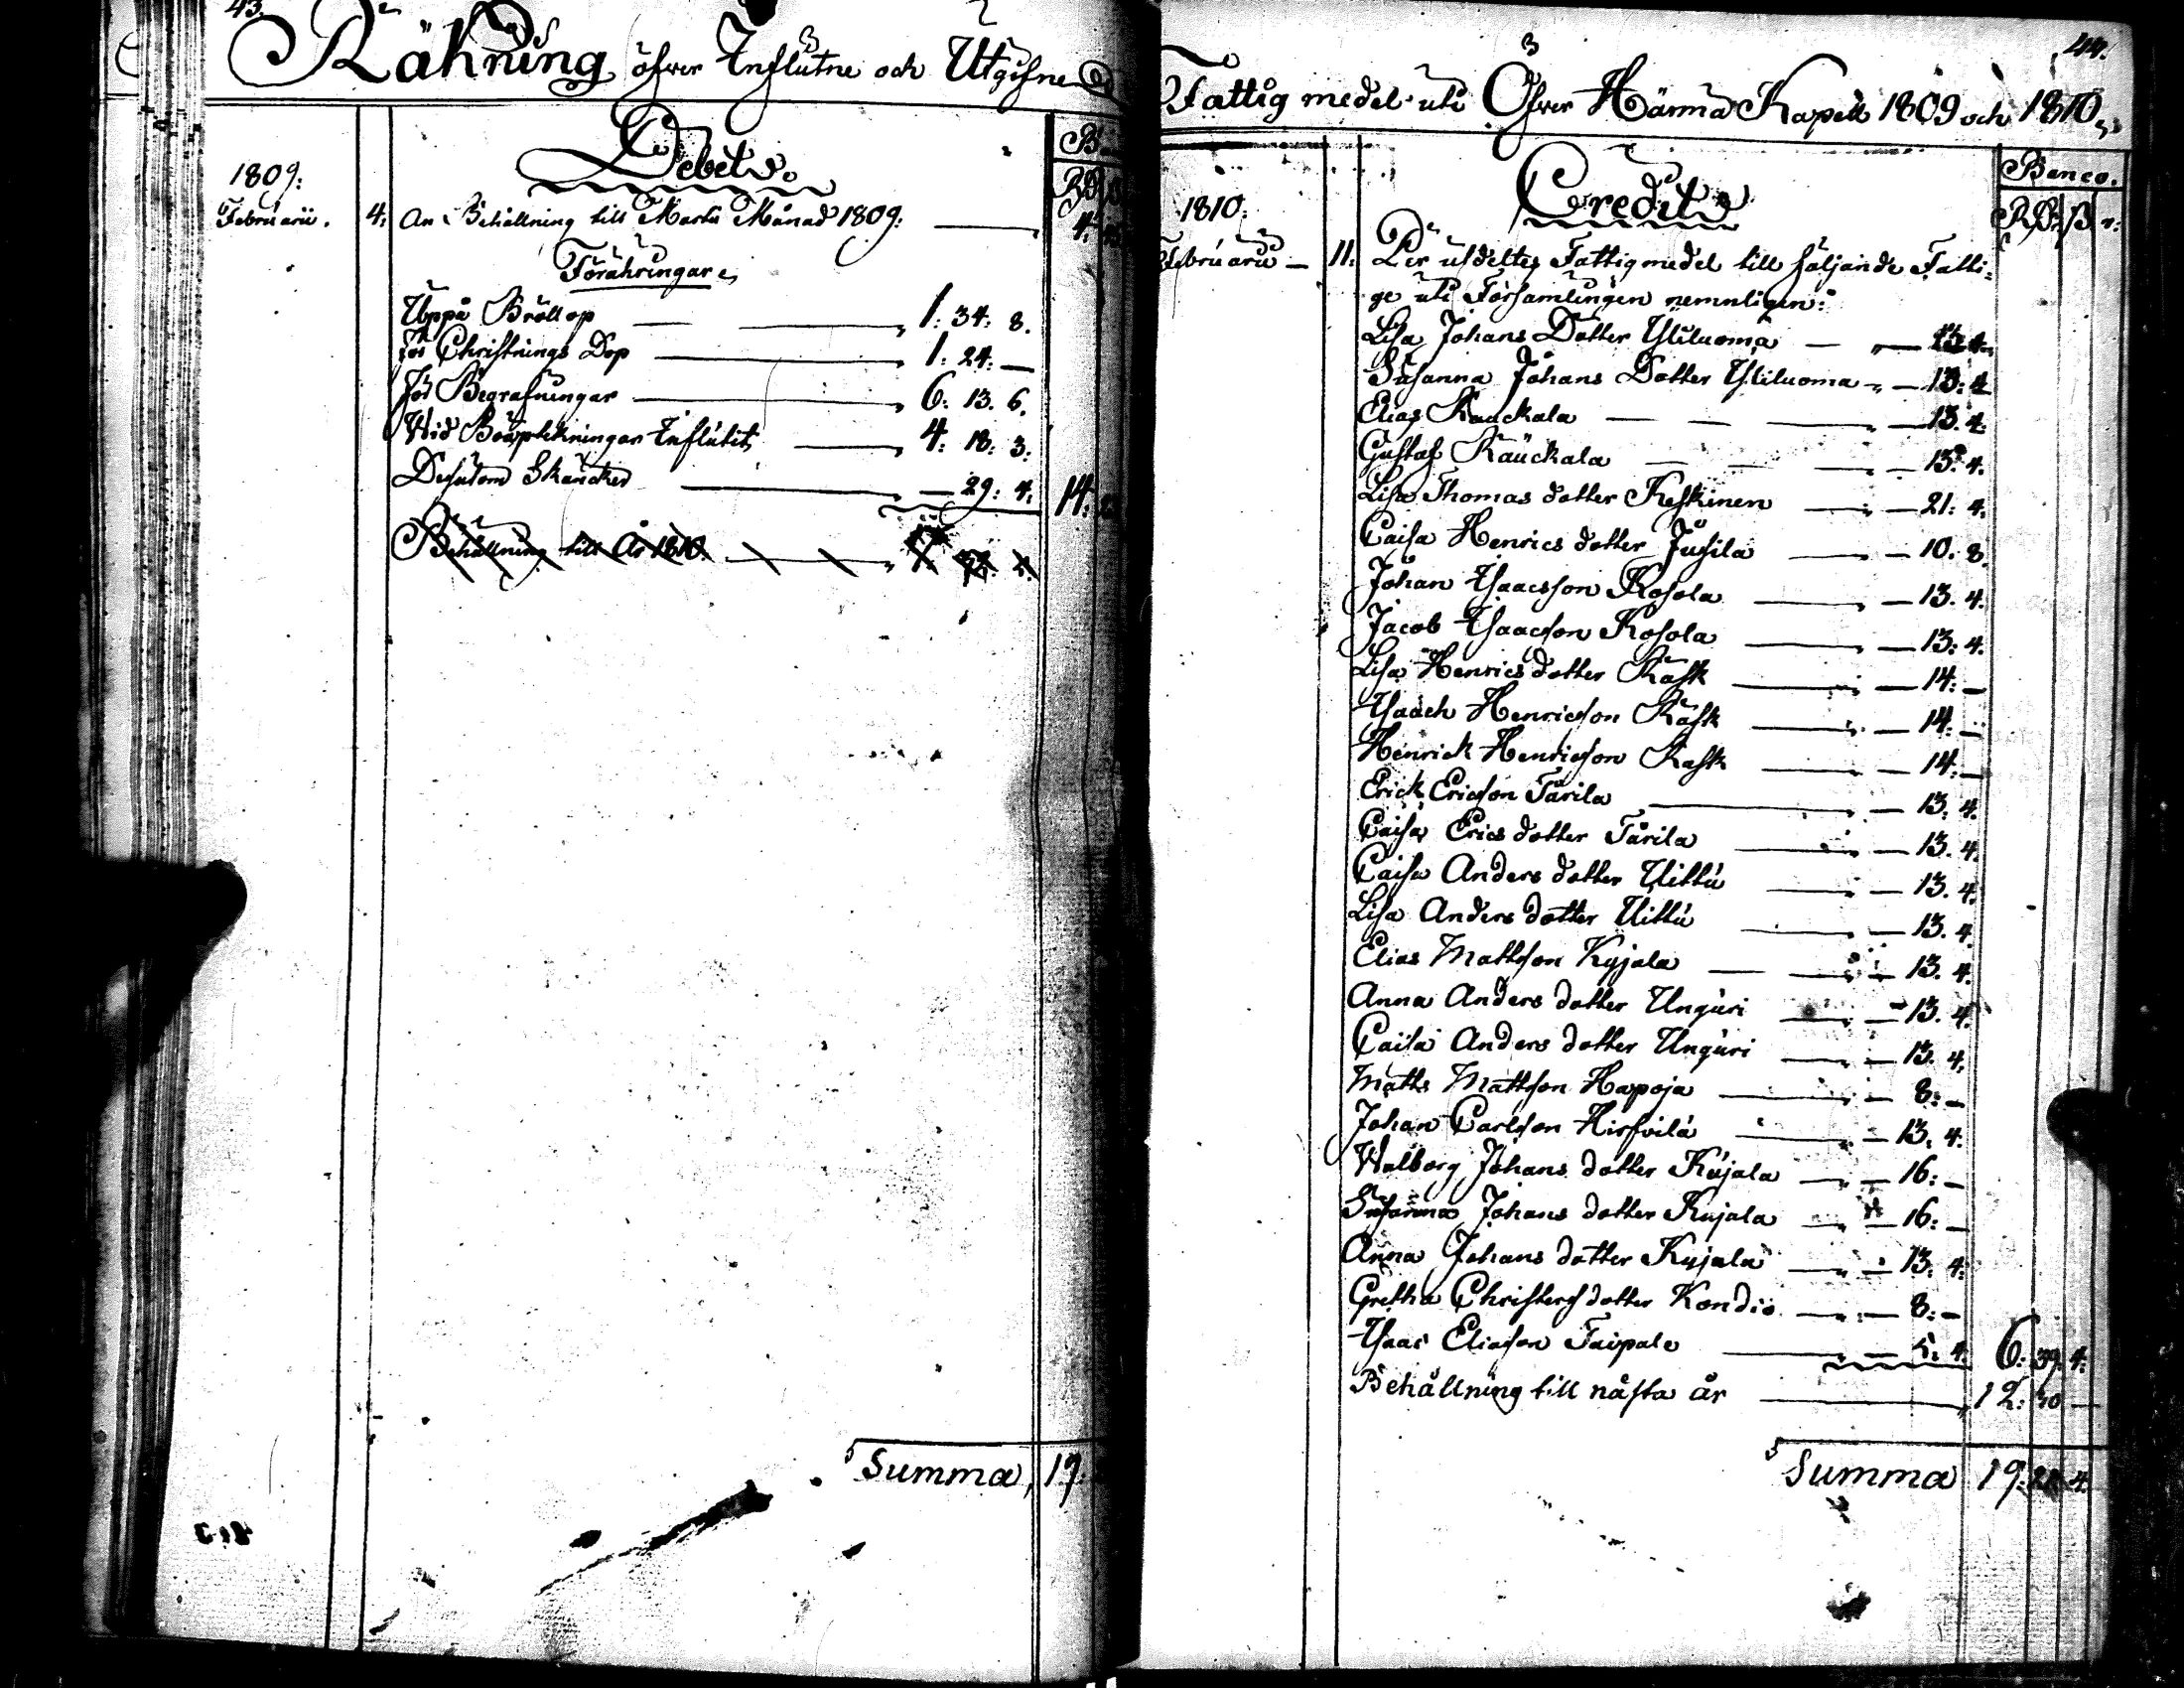 43.
Räkning öfwer Influtne och Utgifne
Debet
B
1809:
Februarii. 4. An Behållning till Martii Månad 1809: 4.
Förähringar
Uppå Bröllop 1: 34: 8.
för Christnings Dop 1: 24: —
för Begrafningar 6: 13. 6.
Wid Bössplikningar Influtit 4: 18: 3:
Desutom Skäncker — 29: 4. 14:
Behållning till År 1810.
Summa, 19:
44.
Fattig medel uti Öfwer Härmä Kapell 1809 och 1810
Credit
Banco.
1810:
Februarii — 11: Per utdeltes Fattig medel till följande Fatti-
ge uti Församlingen nemnligen:
Lisa Johans Dotter Yliluoma — 13: 4.
Susanna Johans Dotter Yliluoma — 13: 4
Elias Rauckala — 13. 4.
Gustaf Rauckala — 13: 4.
Lisa Thomas dotter Keskinen — 21: 4.
Caisa Henrics dotter Jusila — 10. 8.
Johan Isaacsson Kosola — 13. 4.
Jacob Isaacson Kosola — 13: 4.
Lisa Henrics dotter Rask — 14: —
Isaach Henricson Rask — 14: —
Henrick Henricson Rask — 14: —
Erick Ericson Tarila — 13: 4.
Caisa Erics dotter Tarila — 13. 4.
Caisa Anders dotter Uittu — 13. 4.
Lisa Anders dotter Uittu — 13. 4.
Elias Mattsson Kujala — 13. 4.
Anna Anders dotter Unguri — 13. 4.
Caisa Anders dotter Unguri — 13. 4.
Matts Mattsson Hapoja — 8: —
Johan Carlsson Hirsvilä — 13. 4.
Walborg Johans dotter Kujala — 16: —
Susanna Johans dotter Kujala — 16: —
Anna Johans dotter Kujala — 13: 4:
Gretha Christers dotter Kondio — 8: —
Isaac Eliason Taipale — 5: 4. 6: 39: 4:
Behållning till nästa år 12: 30 —
Summa 19: 21 4.